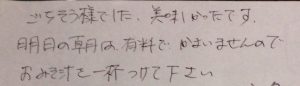 ごちそう様でした。美味しかったです。
明日の朝は、有料でかまいませんので
おみそ汁を一杯つけて下さい